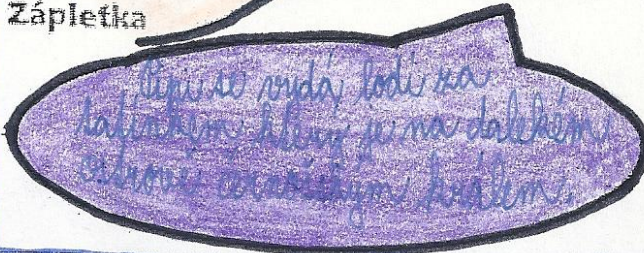 Zápletka
Pipi se vydá lodí za
tatínkem který je na dalekém
ostrově černošským králem.